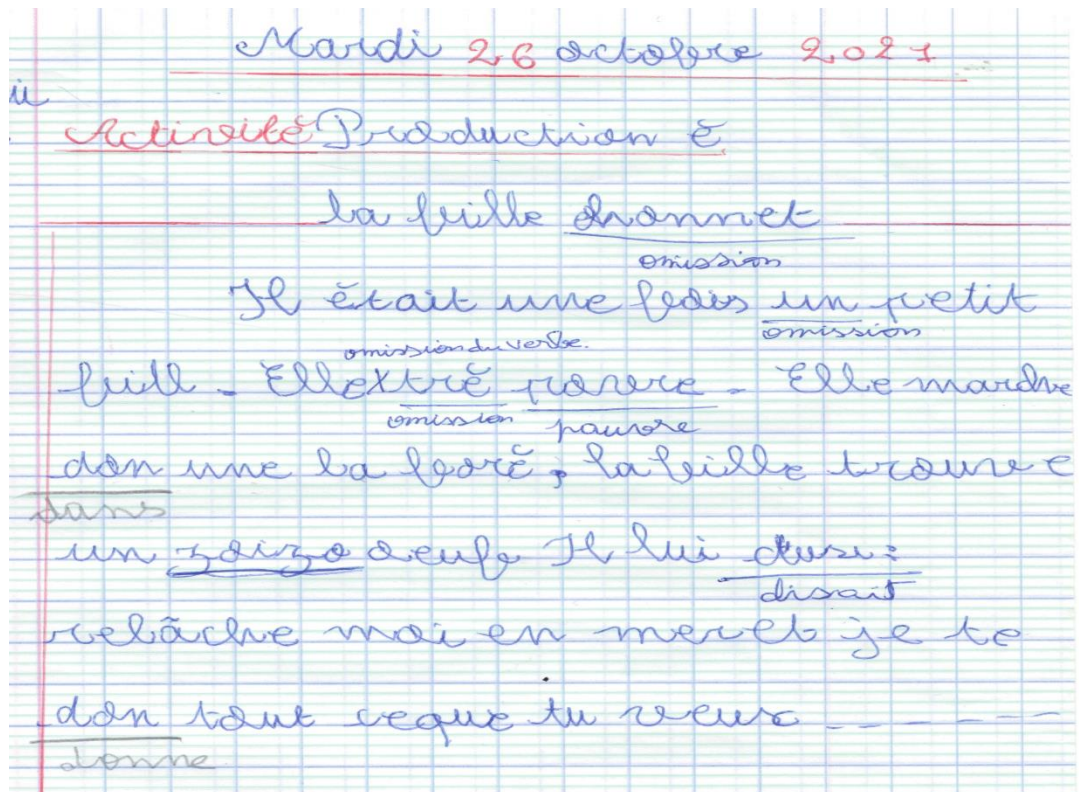 Mardi 26 octobre 2021
ii
Activité Production é
la feille honnet
omission
Il était une fois un petit
omission
omission du verbe.
fuill - Elle x tré povre - Elle marche
omission pauvre
don une la foré, la feille trouve
dans
un zoizo oeufe Il lui dusi:
disait
relâche moi en merct je te
don tout ceque tu veux ------
donne